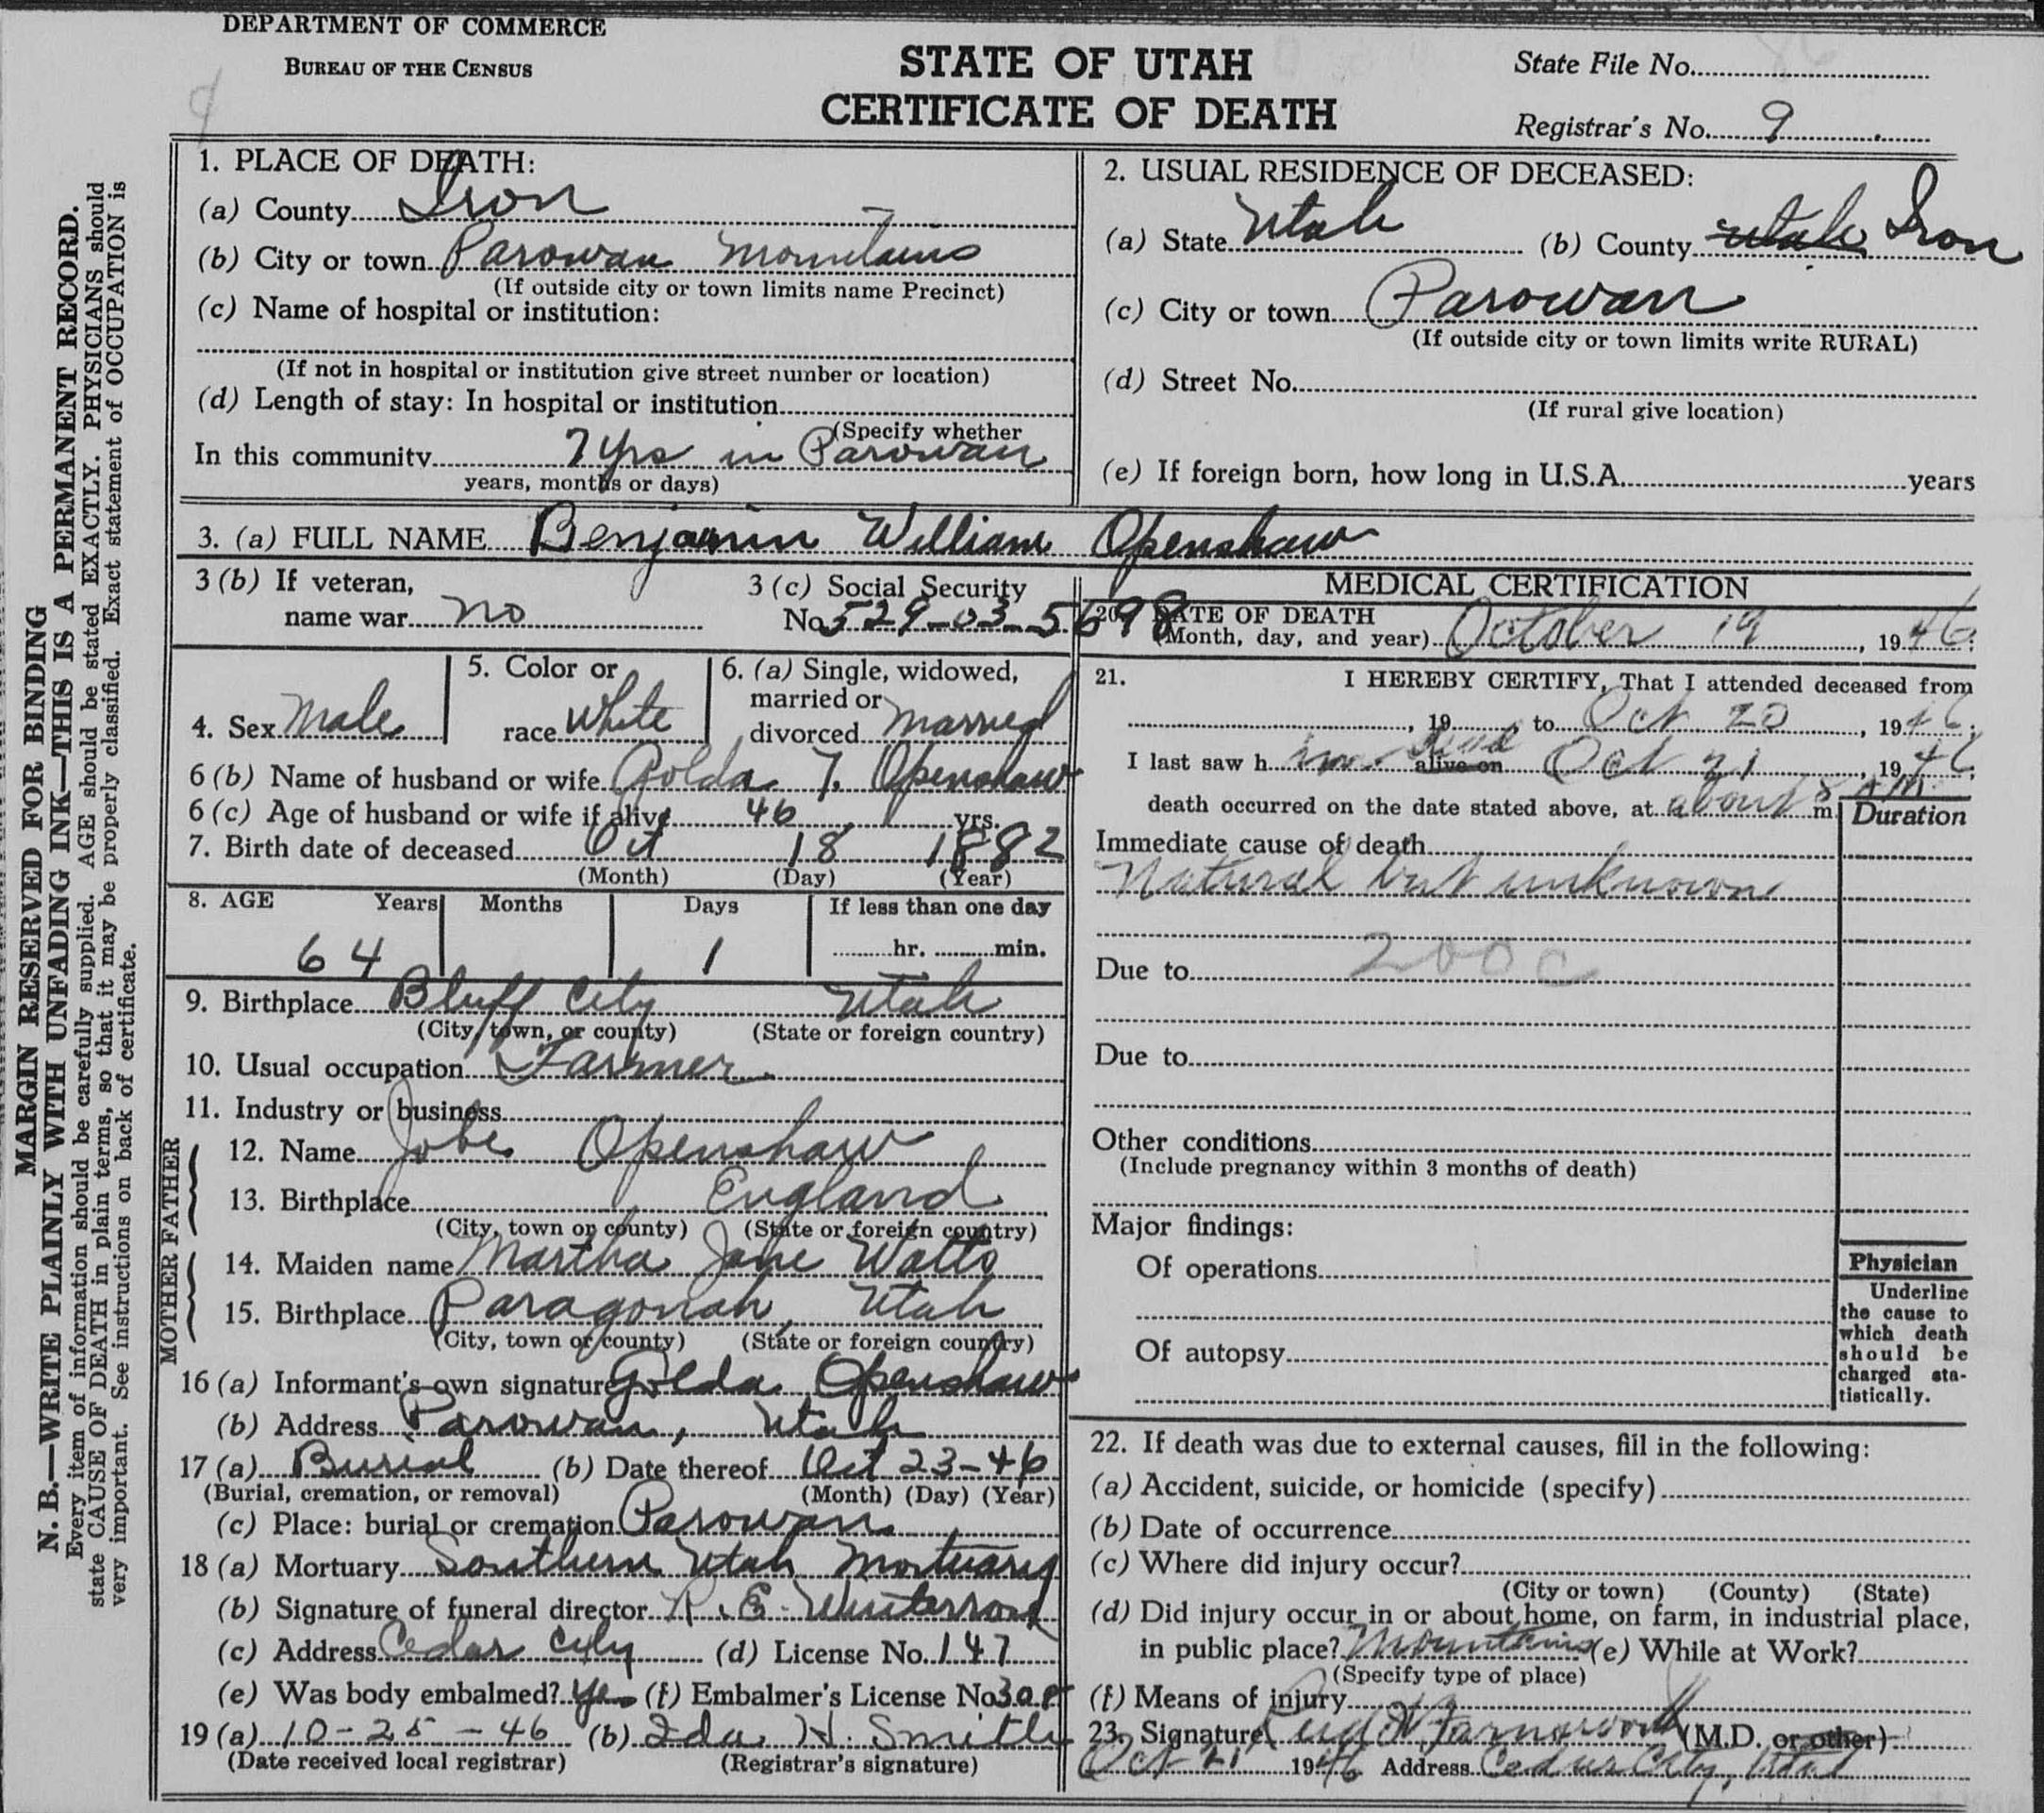 DEPARTMENT OF COMMERCE
BUREAU OF THE CENSUS
STATE OF UTAH
CERTIFICATE OF DEATH
State File No.
Registrar's No. 9
MARGIN RESERVED FOR BINDING
N. B.—WRITE PLAINLY WITH UNFADING INK—THIS IS A PERMANENT RECORD.
Every item of information should be carefully supplied. AGE should be stated EXACTLY. PHYSICIANS should
state CAUSE OF DEATH in plain terms, so that it may be properly classified. Exact statement of OCCUPATION is
very important. See instructions on back of certificate.
1. PLACE OF DEATH:
(a) County Iron
(b) City or town Parowan Mountains
(If outside city or town limits name Precinct)
(c) Name of hospital or institution:
(If not in hospital or institution give street number or location)
(d) Length of stay: In hospital or institution
(Specify whether
In this community 7 yrs in Parowan
years, months or days)
2. USUAL RESIDENCE OF DECEASED:
(a) State Utah (b) County Utah Iron
(c) City or town Parowan
(If outside city or town limits write RURAL)
(d) Street No.
(If rural give location)
(e) If foreign born, how long in U.S.A. years
3. (a) FULL NAME Benjamin William Openshaw
3 (b) If veteran,
name war no
3 (c) Social Security
No. 529-03-5698
4. Sex Male
5. Color or
race White
6. (a) Single, widowed,
married or
divorced married
6 (b) Name of husband or wife Golda T. Openshaw
6 (c) Age of husband or wife if alive 46 yrs.
7. Birth date of deceased Oct 18 1882
(Month) (Day) (Year)
8. AGE Years Months Days If less than one day
64 1 hr. min.
9. Birthplace Bluff City Utah
(City, town, or county) (State or foreign country)
10. Usual occupation Farmer
11. Industry or business
FATHER
12. Name Jobe Openshaw
13. Birthplace England
(City, town or county) (State or foreign country)
MOTHER
14. Maiden name Martha Jane Watts
15. Birthplace Paragonah, Utah
(City, town or county) (State or foreign country)
16 (a) Informant's own signature Golda Openshaw
(b) Address Parowan, Utah
17 (a) Burial (b) Date thereof Oct 23-46
(Burial, cremation, or removal) (Month) (Day) (Year)
(c) Place: burial or cremation Parowan
18 (a) Mortuary Southern Utah Mortuary
(b) Signature of funeral director R. E. Winterrose
(c) Address Cedar City (d) License No. 147
(e) Was body embalmed? Yes (f) Embalmer's License No
19 (a) 10-25-46 (b) Ida N. Smith
(Date received local registrar) (Registrar's signature)
MEDICAL CERTIFICATION
20. DATE OF DEATH
(Month, day, and year) October 19, 1946
21. I HEREBY CERTIFY, That I attended deceased from
, 19 to Oct 20, 1946
I last saw him alive on dead Oct 21, 1946
death occurred on the date stated above, at about 8 AM m
Duration
Immediate cause of death
Natural but unknown
Due to 200 c
Due to
Other conditions
(Include pregnancy within 3 months of death)
Major findings:
Of operations
Of autopsy
Physician
Underline
the cause to
which death
should be
charged sta-
tistically.
22. If death was due to external causes, fill in the following:
(a) Accident, suicide, or homicide (specify)
(b) Date of occurrence
(c) Where did injury occur?
(City or town) (County) (State)
(d) Did injury occur in or about home, on farm, in industrial place,
in public place? Mountains (e) While at Work?
(Specify type of place)
(f) Means of injury
23. Signature Farnsworth (M.D. or other)
Oct 21 1946 Address Cedar City, Utah